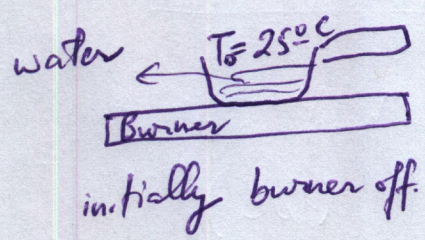 water
T₀=25ºC
Burner
initially burner off.